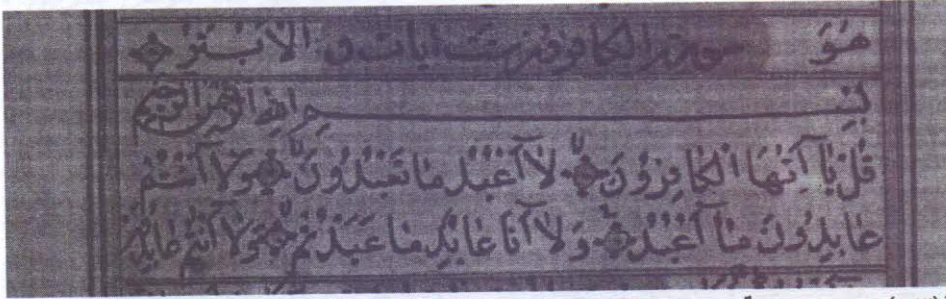 هُوَ سورة الكافرون ست ايات الْاَبْتَرُ
بِسْمِ اللهِ الرَّحْمٰنِ الرَّحِيمِ
قُلْ يَا اَيُّهَا الْكَافِرُونَ لَا اَعْبُدُ مَا تَعْبُدُونَ وَلَا اَنْتُمْ
عَابِدُونَ مَا اَعْبُدُ وَلَا اَنَا عَابِدٌ مَا عَبَدْتُمْ وَلَا اَنْتُمْ